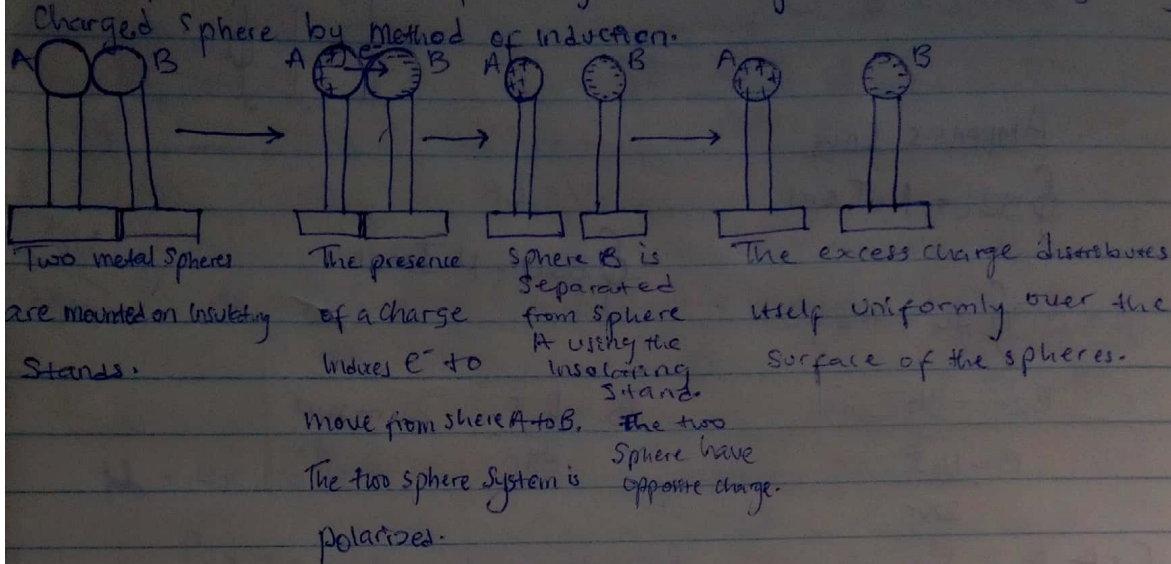 Charged sphere by method of induction.
A B A e⁻ B A B A B
Two metal spheres
are mounted on insulating
stands.
The presence
of a charge
induces e⁻ to
move from shere A to B.
The two sphere system is
polarized.
Sphere B is
separated
from sphere
A using the
insolating
stand.
The two
sphere have
opposite charge.
The excess charge distributes
itself uniformly over the
surface of the spheres.